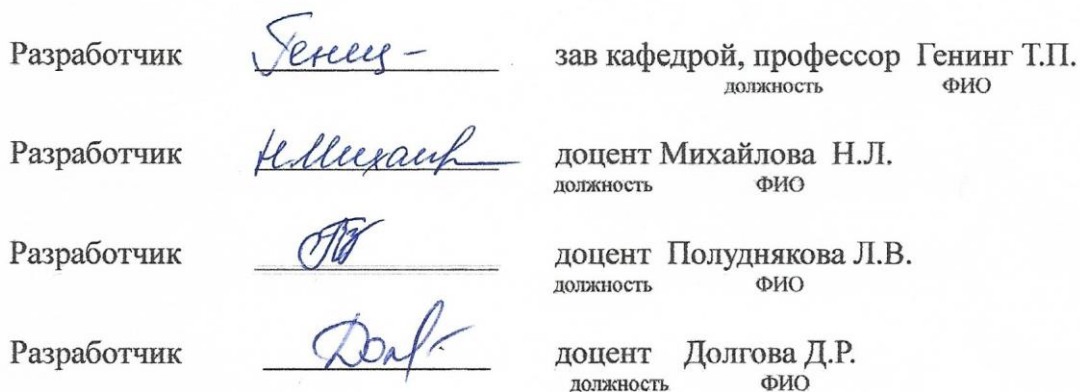 Разработчик зав кафедрой, профессор Генинг Т.П.
должность ФИО
Разработчик Н.Михайл доцент Михайлова Н.Л.
должность ФИО
Разработчик доцент Полуднякова Л.В.
должность ФИО
Разработчик доцент Долгова Д.Р.
должность ФИО